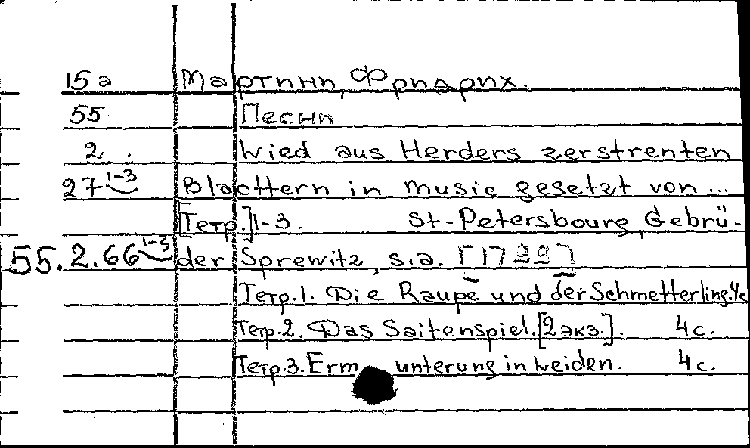 15а Мартини, Фридрих.
55 Песни
2. Wied aus Herders zerstrenten
27 1-3 Blattern in music gesetzt von...
[Тетр.]1-3. St-Petersbourg, Gebrü-
55.2.66 1-3 der Sprewitz, s.a. [179?]
Тетр.1. Die Raupe und der Schmetterling. 4с
Тетр.2. Das Saitenspiel. [2экз.]. 4с.
Тетр.3. Erm unterung in Leiden. 4с.